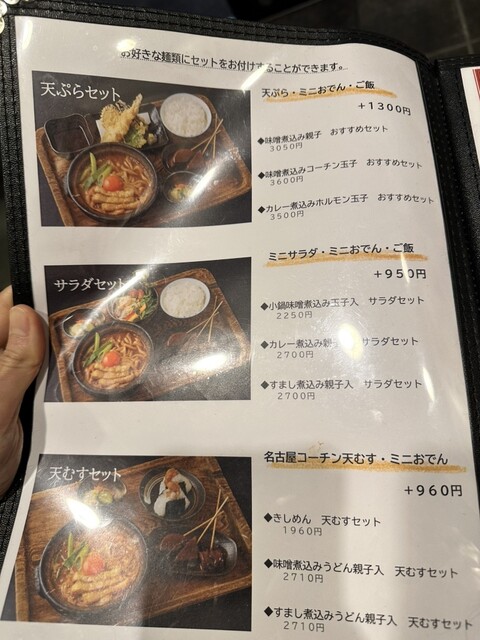 お好きな麺類にセットをお付けすることができます。
天ぷらセット
天ぷら・ミニおでん・ご飯
+1300円
◆味噌煮込み親子 おすすめセット
3050円
◆味噌煮込みコーチン玉子 おすすめセット
3600円
◆カレー煮込みホルモン玉子 おすすめセット
3500円
サラダセット
ミニサラダ・ミニおでん・ご飯
+950円
◆小鍋味噌煮込み玉子入 サラダセット
2250円
◆カレー煮込み親 サラダセット
2700円
◆すまし煮込み親子入 サラダセット
2700円
天むすセット
名古屋コーチン天むす・ミニおでん
+960円
◆きしめん 天むすセット
1960円
◆味噌煮込みうどん親子入 天むすセット
2710円
◆すまし煮込みうどん親子入 天むすセット
2710円